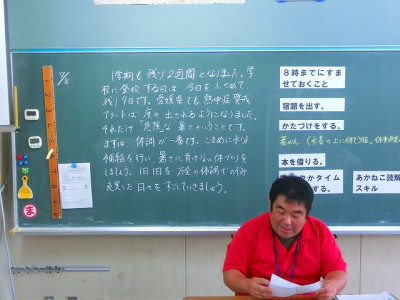 7/8
1学期も残り2週間となりました。学
校に登校する日は今日をふくめて、
残り9日です。愛媛県でも熱中症警戒
アラートが度々出されるようになりました。
それだけ"危険"な暑さということです。
まずは、体調が一番です。こまめに水分
補給を行い暑さに負けない体づくりを
しましょう。1日1日を万全の体調でのぞみ
充実した日々をすごしていきましょう。
8時までにすま
せておくこと
宿題を出す。
かたづけをする。
本を借りる。
やかタイム
する。
あかねこ読解
スキル
ま